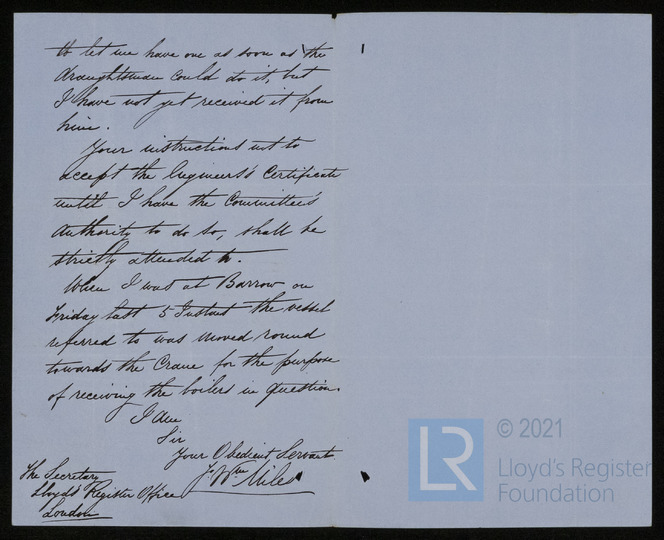 to let me have one as soon as the
draughtsman could do it, but
I have not yet received it from
him.
Your instructions not to
accept the Engineer's Certificate
until I have the Committee's
Authority to do so, shall be
strictly attended to.
When I was at Barrow on
Friday last 5 Instant the vessel
referred to was moved round
towards the Crane for the purpose
of receiving the boilers in question.
I am
Sir
Your Obedient Servant
Jno Wm Miles
The Secretary
Lloyd's Register Office
London
LR
© 2021
Lloyd's Register
Foundation